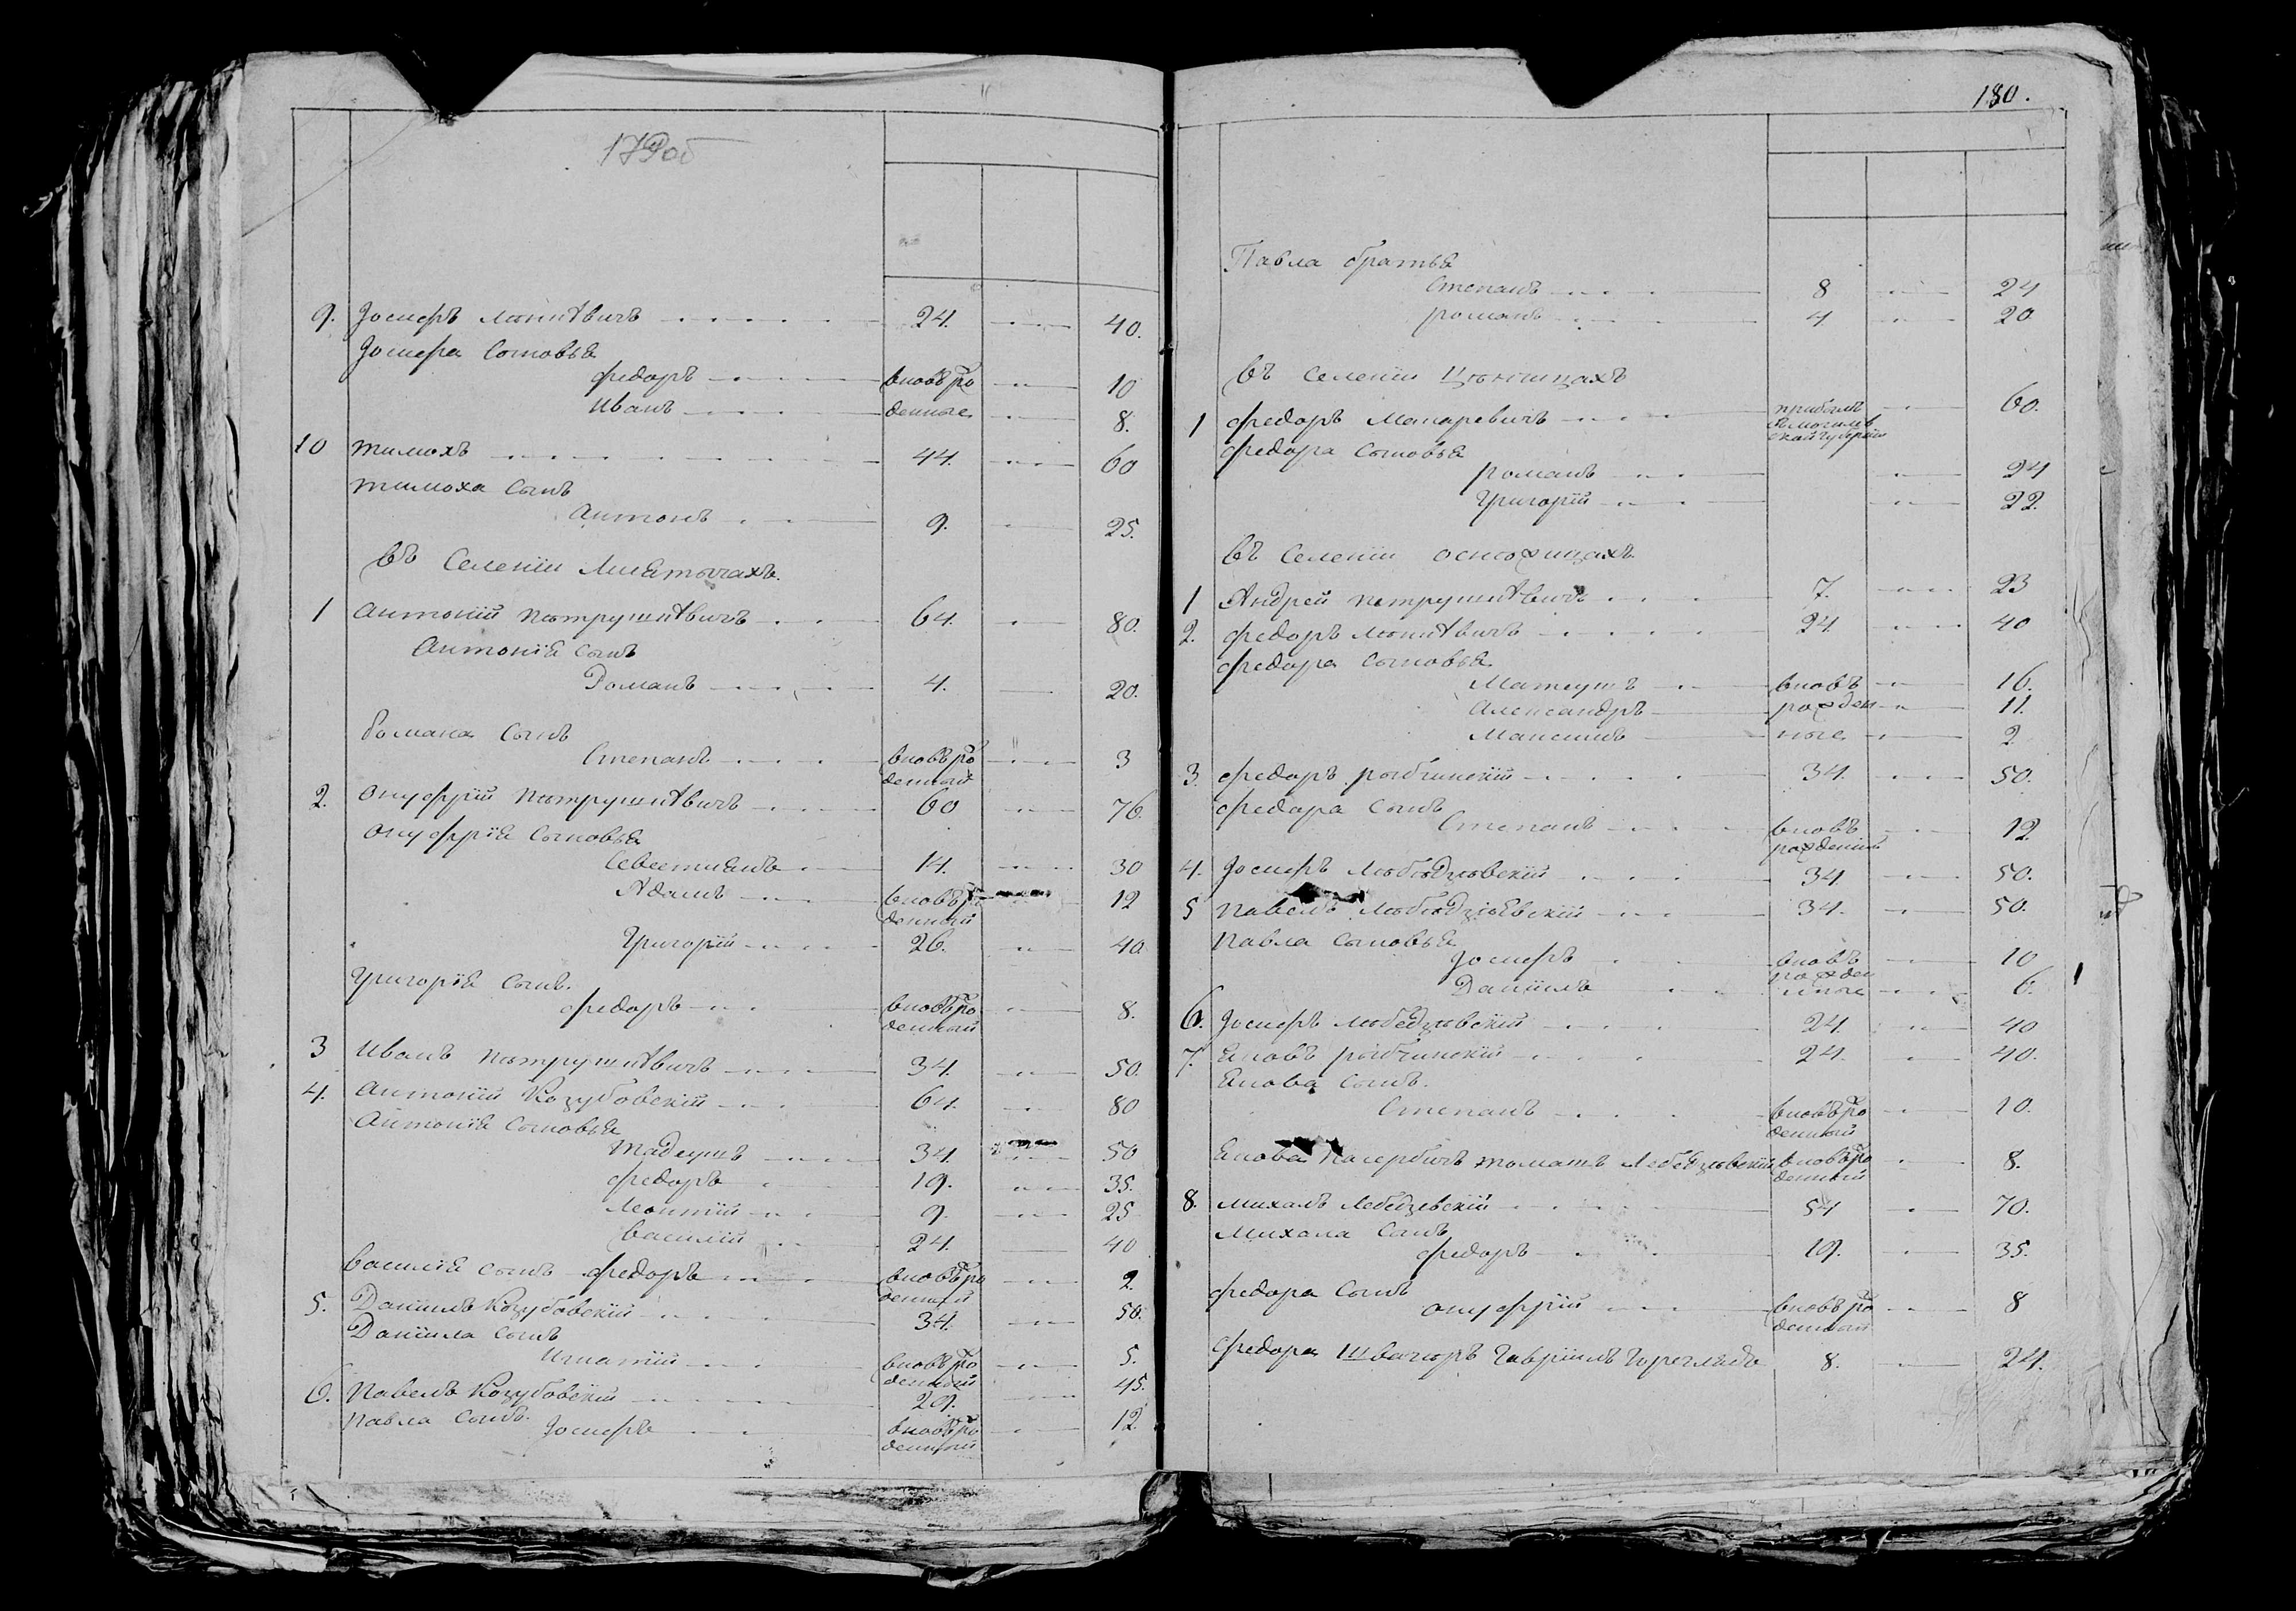 179 об
9. Іосифъ 24. 40.
Іосифа Сыновья
Федоръ вновь ро 10
Иванъ денные 8.
10 Тимохъ 44. 60
Тимоха Сынъ
Антонъ 9. 25.
Въ Селеніи
1 Антоній Петрушкевичъ 64. 80.
Антонія Сынъ
Романъ 4. 20.
Романа Сынъ
Степанъ вновь ро 3
денный
2. Онуфрій Петрушкевичъ 60 76.
Онуфрія Сыновья
Севестиянъ 14. 30
Адамъ вновь ро 12
денный
Григорій 26. 40
Григорія Сынъ.
Федоръ вновь ро 8.
денный
3 Иванъ Петрушкевичъ 34. 50.
4. Антоній Козубовскій 64. 80
Антонія Сыновья
Тадеушъ 34. 50
Федоръ 19. 35.
Леонтій 9. 25
Василій 24. 40
Василія Сынъ Федоръ вновь ро 2.
денный
5. Даніилъ Козубовскій 34. 50.
Даніила Сынъ
Игнатій вновь ро 5.
денный
6. Павелъ Козубовскій 29. 45.
Павла Сынъ.
Іосифъ вновь ро 12.
денный
180.
Павла братья
Степанъ 8 24
Романъ 4 20.
Въ Селеніи
1 Федоръ Макаревичъ прибылъ 60.
Могилев
ской губерніи
Федора Сыновья
Романъ 24
Григорій 22.
Въ Селеніи
1 Андрей Петрушкевичъ 7. 23
2. Федоръ 24 40
Федора Сыновья
Матеушъ вновь 16.
Александръ рожден 11.
Максимъ ные 2
3. Федоръ Рыбчинскій 34. 50.
Федора Сынъ
Степанъ вновь 12
рожденный
4. Іосифъ 34 50.
5 Павелъ 34. 50.
Павла Сыновья
Іосифъ вновь 10
рожден
Даніилъ ные 6.
6. Іосифъ 24. 40
7. Яковъ Рыбчинскій 24. 40.
Якова Сынъ.
Степанъ вновь ро 10.
денный
Якова Пасербичъ Томашъ вновь ро 8.
денный
8. Михалъ 54 70.
Михала Сынъ
Федоръ 19. 35.
Федора Сынъ
Онуфрій вновь ро 8
денный
Федора Швагеръ Гавріилъ 8. 24.